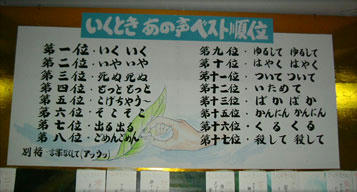 いくとき あの声ベスト順位
第一位・いく いく
第二位・いやいや
第三位・死ぬ死ぬ
第四位・もっともっと
第五位・こげちゃう〜
第六位・そこそこ
第七位・出る出る
第八位・ごめんごめん
別格 言葉なくして(アッウッ)
第九位・ゆるして
第十位・はやく はやく
第十一位・ついてついて
第十二位・いためて
第十三位・ばか ばか
第十五位・かんにん かんにん
第十六位・くる くる
第十七位・殺して 殺して